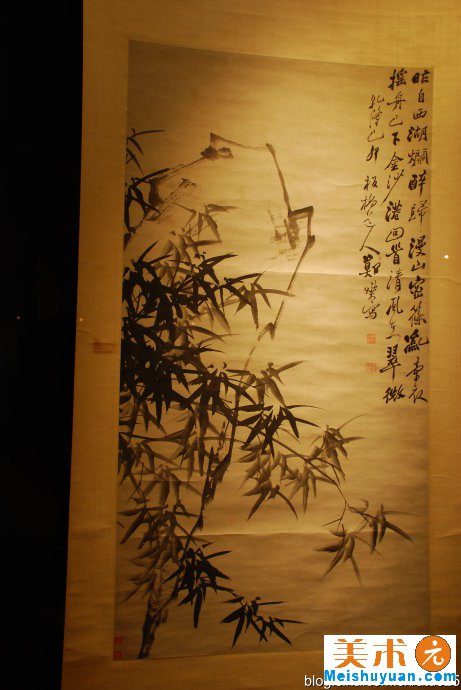 昨自西湖爛醉歸漫山密篠亂牽衣
搖舟已下金沙港回首清風在翠微
乾隆己卯板橋道人鄭燮寫
美术元
Meishuyuan.com